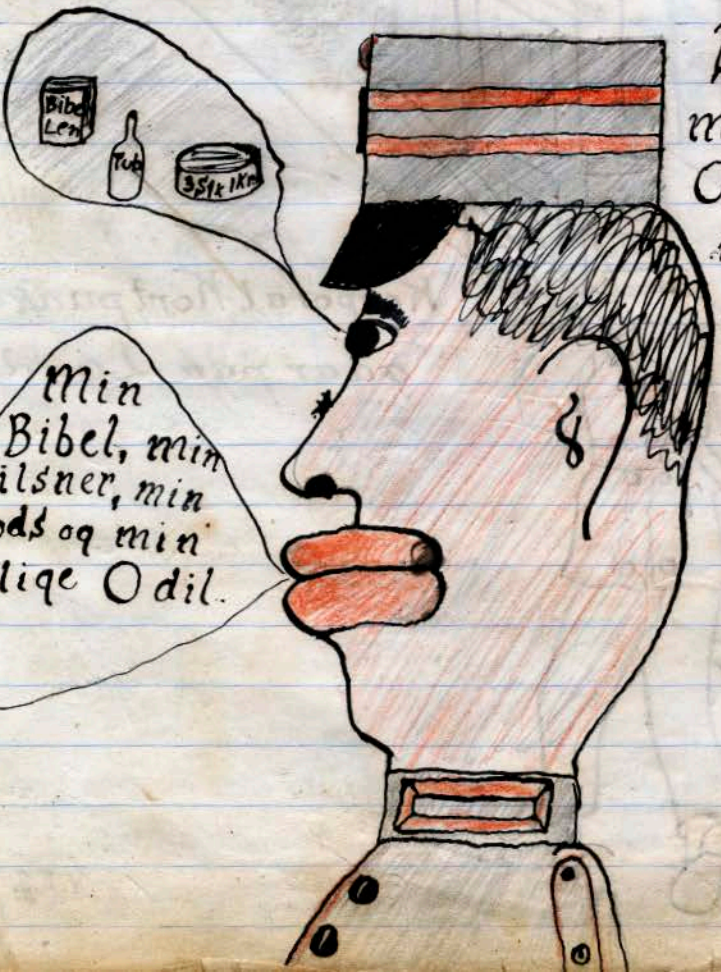 Bibe
Len
Tub
Min
Bibel, min
ilsner, min
ods og min
lige Odil.
m
O